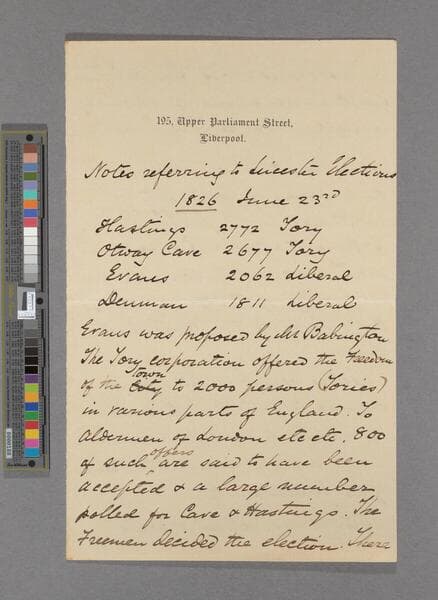 195, Upper Parliament Street,
Liverpool.
Notes referring to Leicester Elections
1826 June 23rd
Hastings 2772 Tory
Otway Cave 2677 Tory
Evans 2062 Liberal
Denman 1811 Liberal
Evans was proposed by Mr Babington
The Tory corporation offered the Freedom
town
of the City to 2000 persons (Tories)
in various parts of England. To
aldermen of London etc etc. 800
offers
of such are said to have been
accepted & a large number
polled for Cave & Hastings. The
Freemen decided the election. There